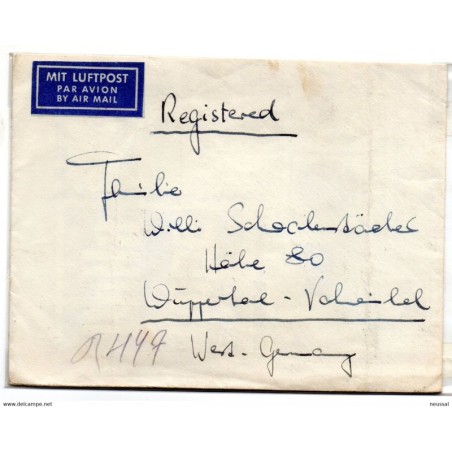 MIT LUFTPOST
PAR AVION
BY AIR MAIL
Registered
Familie
Willi
Höhe 80
Wuppertal - Vohwinkel
West-Germany
R 449
www.delcampe.net
neussal